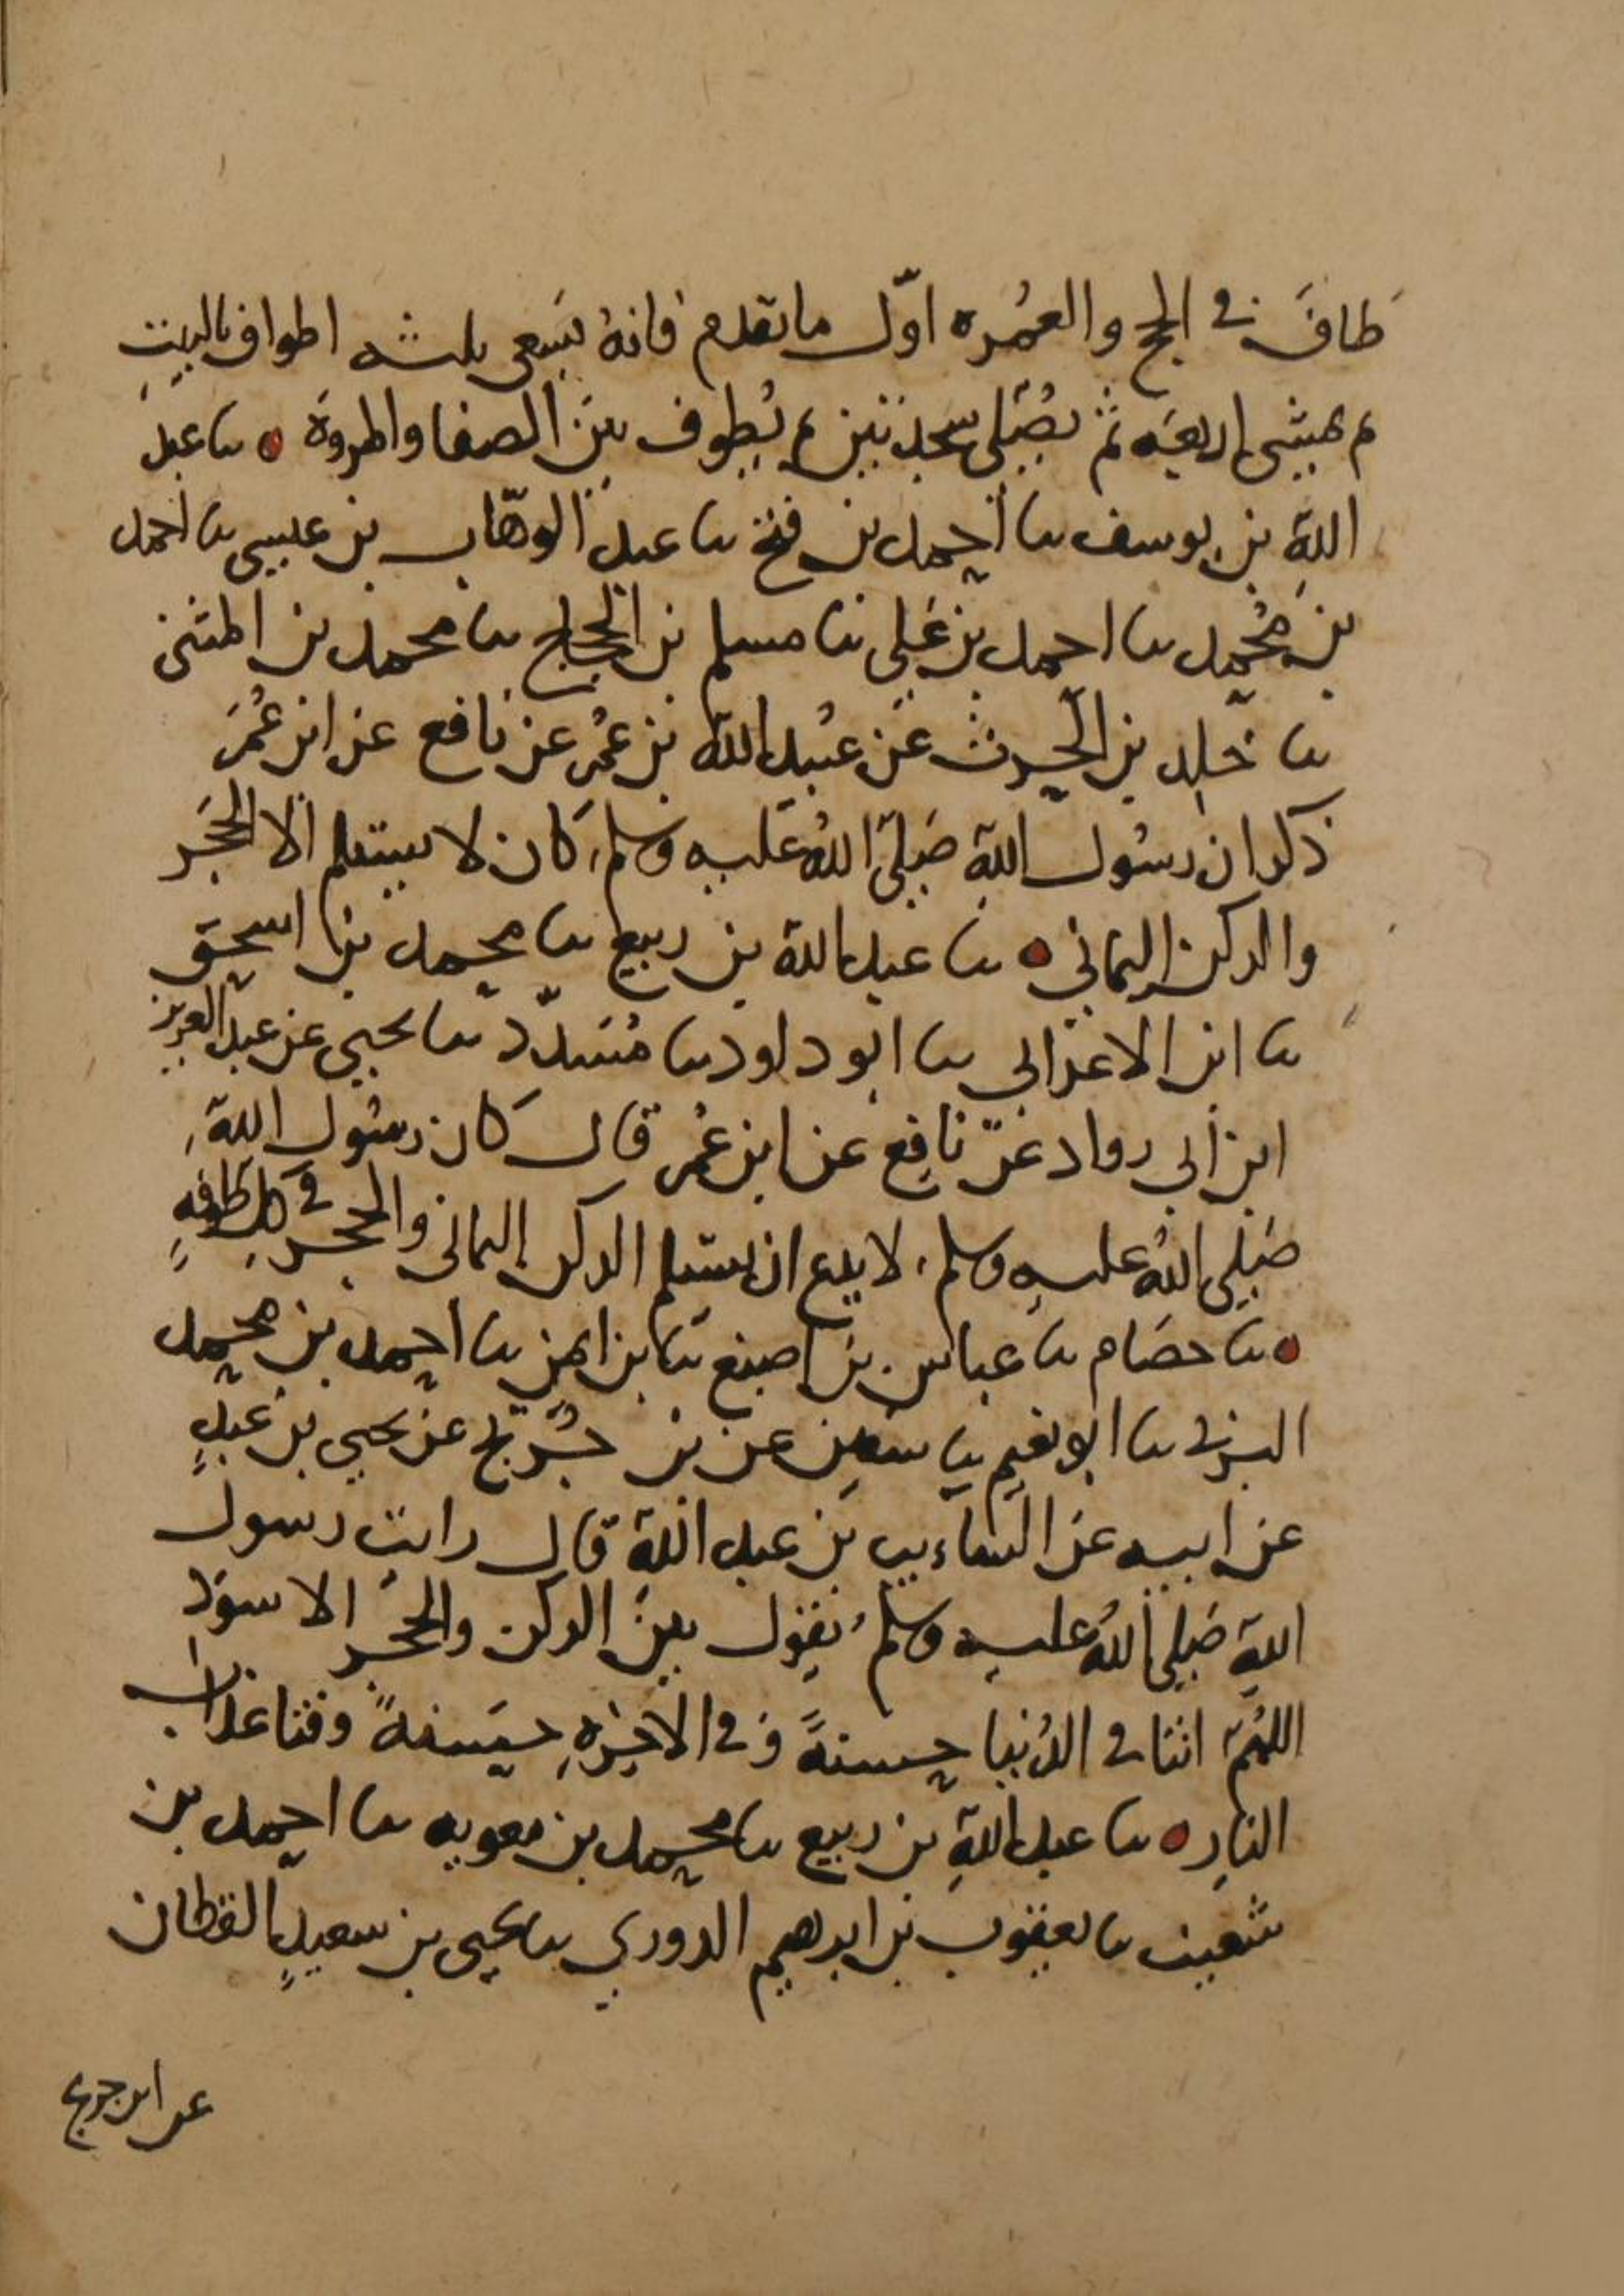 طافَ في الحج والعُمره اوّل ما تقدم فانهُ يَسعى ثلثه اطواف بالبيتِ
ثم يمشى اربعَه ثم يُصَلى سجدتين ثم يُطوف بينَ الصفا والمروَة ٥ نا عبد
اللهِ بن يوسف نا أحمد بن فتح نا عبدُ الوهّاب بن عيسى نا احمد
بن مُحَمد نا احمد بن عَلى نا مسلم بن الحجاج نا محمد بن المثنى
نا خَلِد بن الحرث عَن عبُيد الله بن عمُر عن نافع عن ابن عُمَر
ذكر ان رسُول اللهِ صَلىّ اللهُ عَليه وسلم كان لا يستلم الا الحَجَر
والركن اليماني ٥ نا عَبد الله بن ربيع نا محمد بن اسحق
نا ابن الاعرابي نا ابو داود نا مُسَدّد نا يحيى عن عبد العزيز
ابن أبي رواد عَن نافِع عن ابن عُمر قال كان رسُول اللهِ
صَلى اللهُ عليهِ وسلم لا يدع ان يستلم الركن اليمانى والحجر في كل طَوفهٍ
٥ نا حمَام نا عباس بن اصبغ نا بن ايمن نا احمد بن محمد
البرتى نا ابو نعيم نا سفين عن بن جُريج عن يحيى بن عبيدٍ
عن ابيه عن السَاءيب بن عبد اللهِ قال رايت رسول
اللهِ صَلى اللهُ عليهِ وسلم يَقول بين الركن والحَجر الاسوَد
اللهُمّ اتنا في الدُنيا حسنةً وَفي الآخِرَهِ حَسَنةً وقنا عذاب
النارِ ٥ نا عبد اللهِ بن ربيع نا محمد بن معويه نا احمد بن
شعيب نا يعقوب بن ابرهيم الدورقي نا يحيى بن سعيدٍ القطان
عن ابن جريج